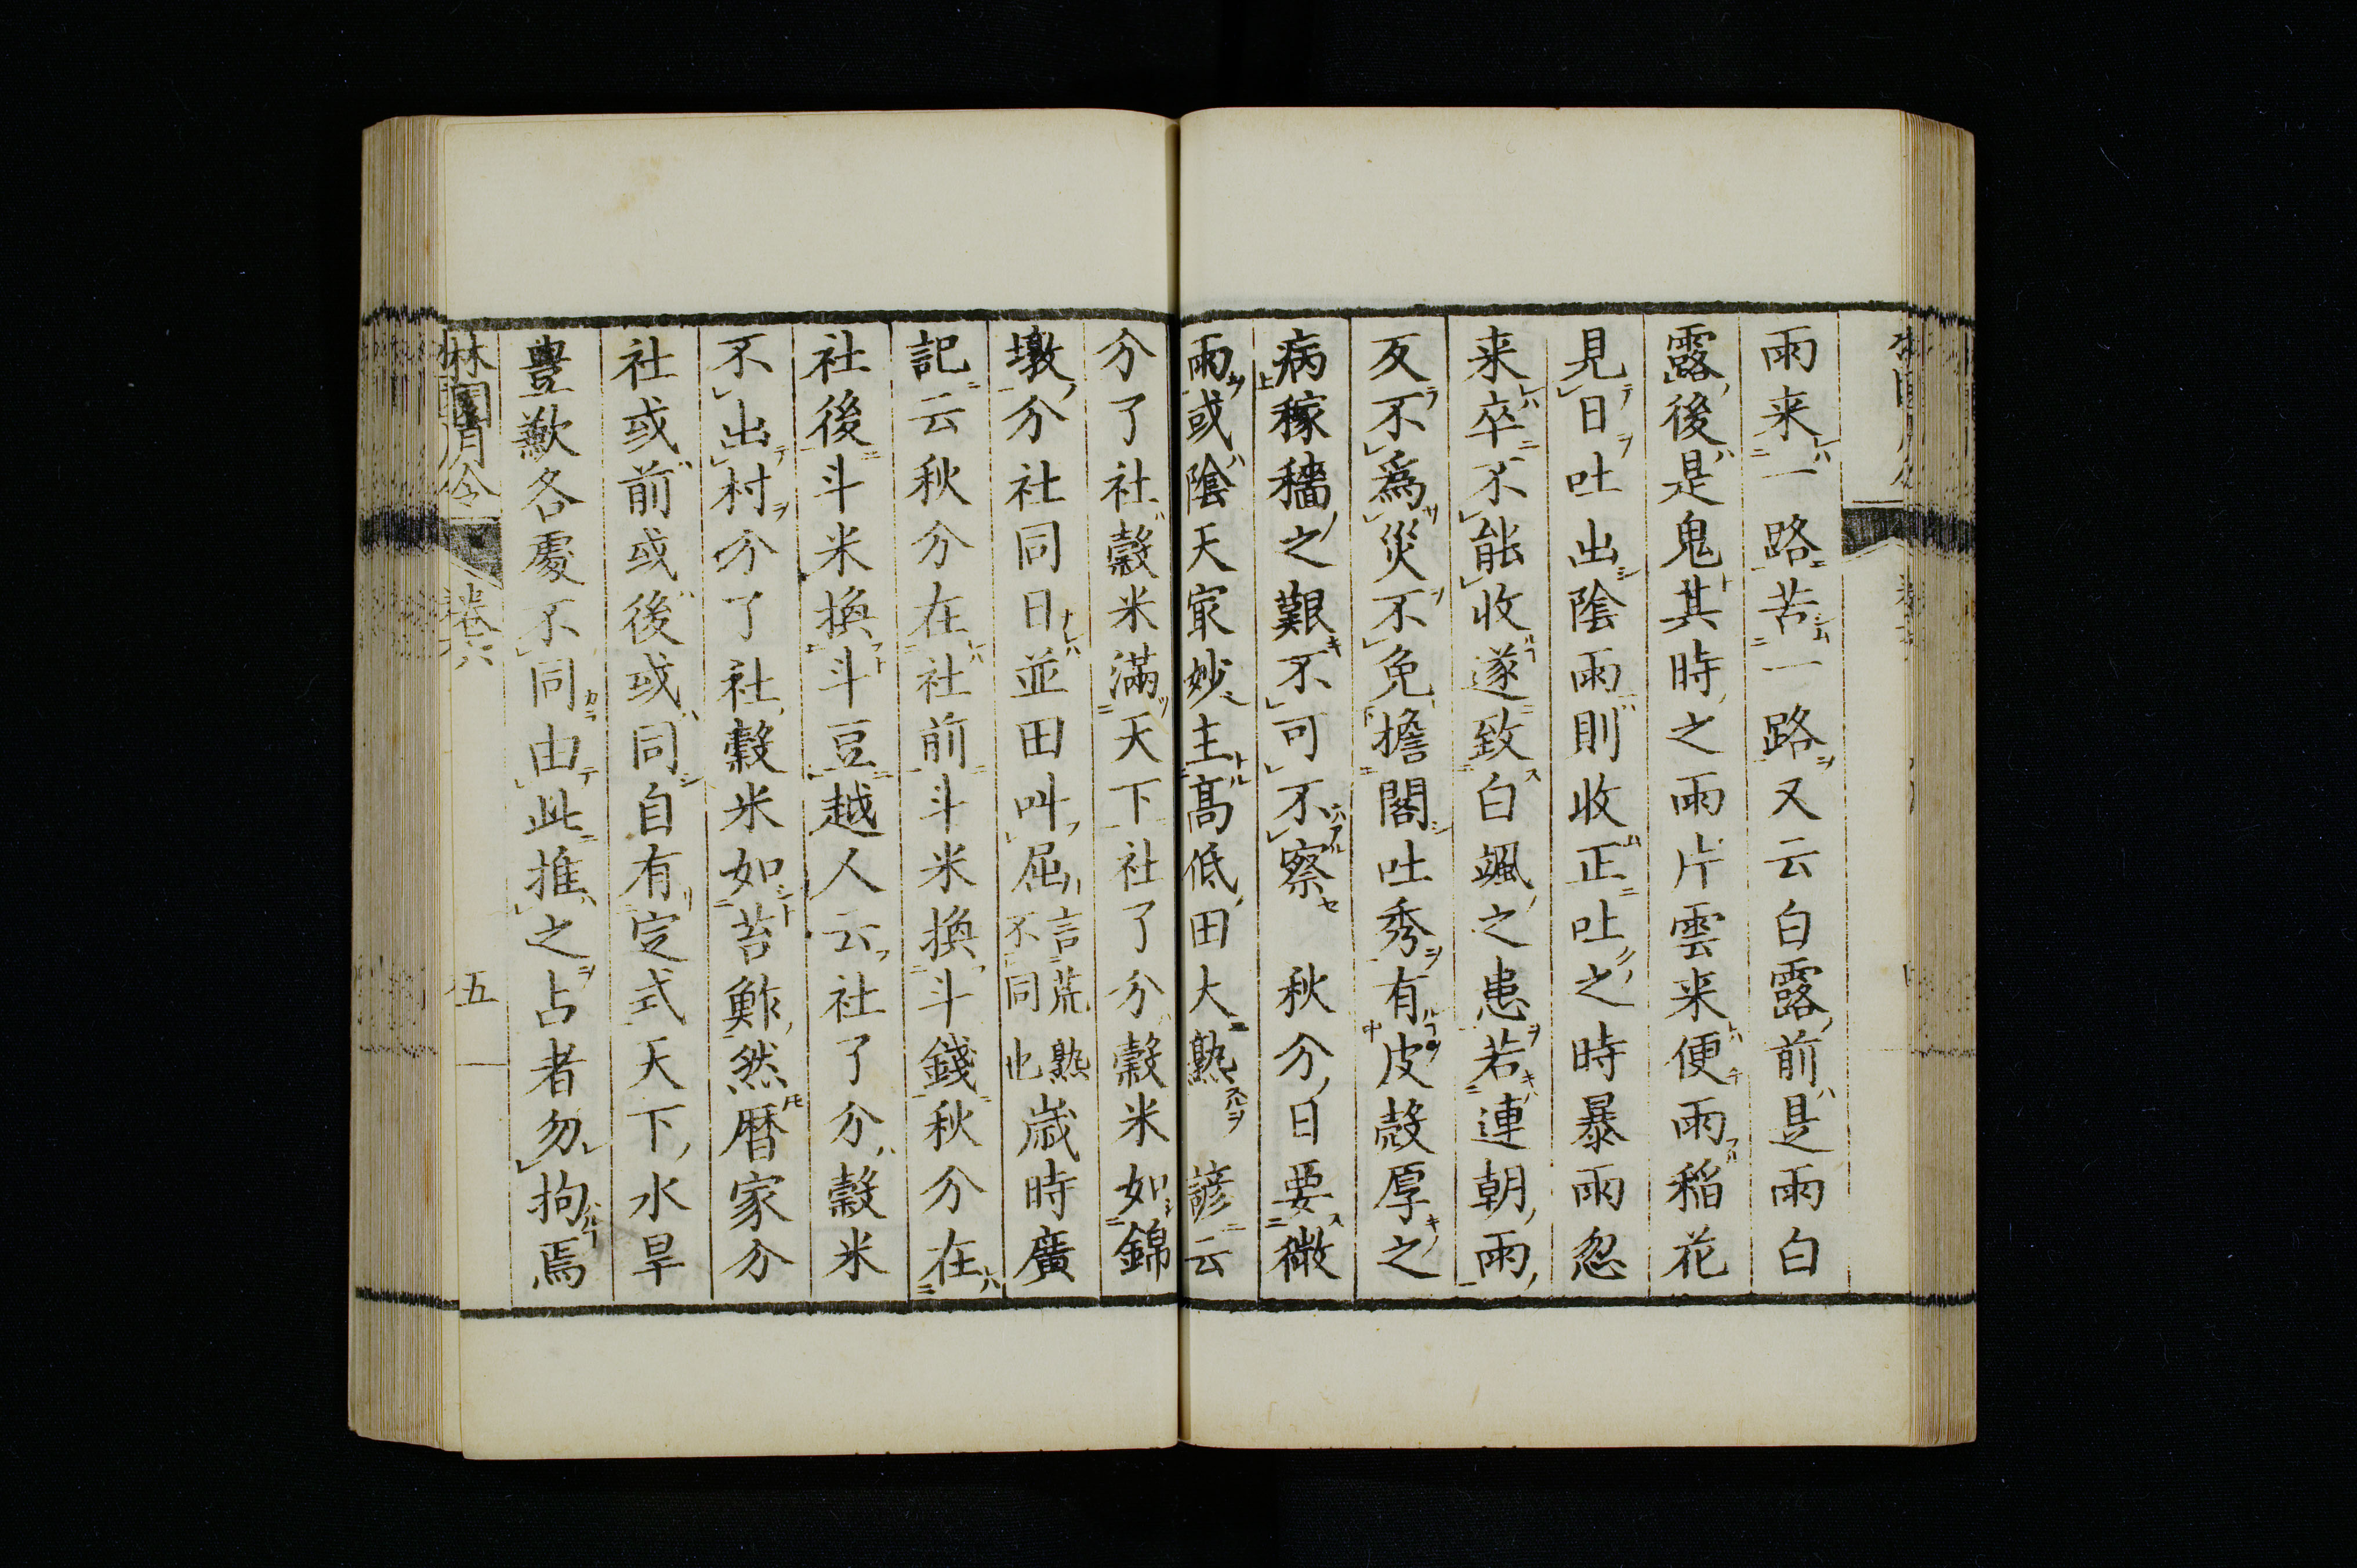 雨来一路苦一路又云白露前是雨白
露後是鬼其時之雨片雲来便雨稲花
見日吐出隂雨則收正吐之時暴雨忽
来卒不能收遂致白颯之患若連朝雨
反不為災不免擔閣吐秀有皮殼厚之
病稼穡之艱不可不察　秋分日要微
雨或隂天㝡妙主髙低田大熟　諺云
分了社穀米滿天下社了分穀米如錦
墩分社同日並田叫屈言荒熟不同也歳時廣
記云秋分在社前斗米換斗錢秋分在
社後斗米換斗豆越人云社了分穀米
不出村分了社穀米如苔鮓然暦家分
社或前或後或同自有定式天下水旱
豊歉各處不同由此推之占者勿拘焉
月令　卷六　五